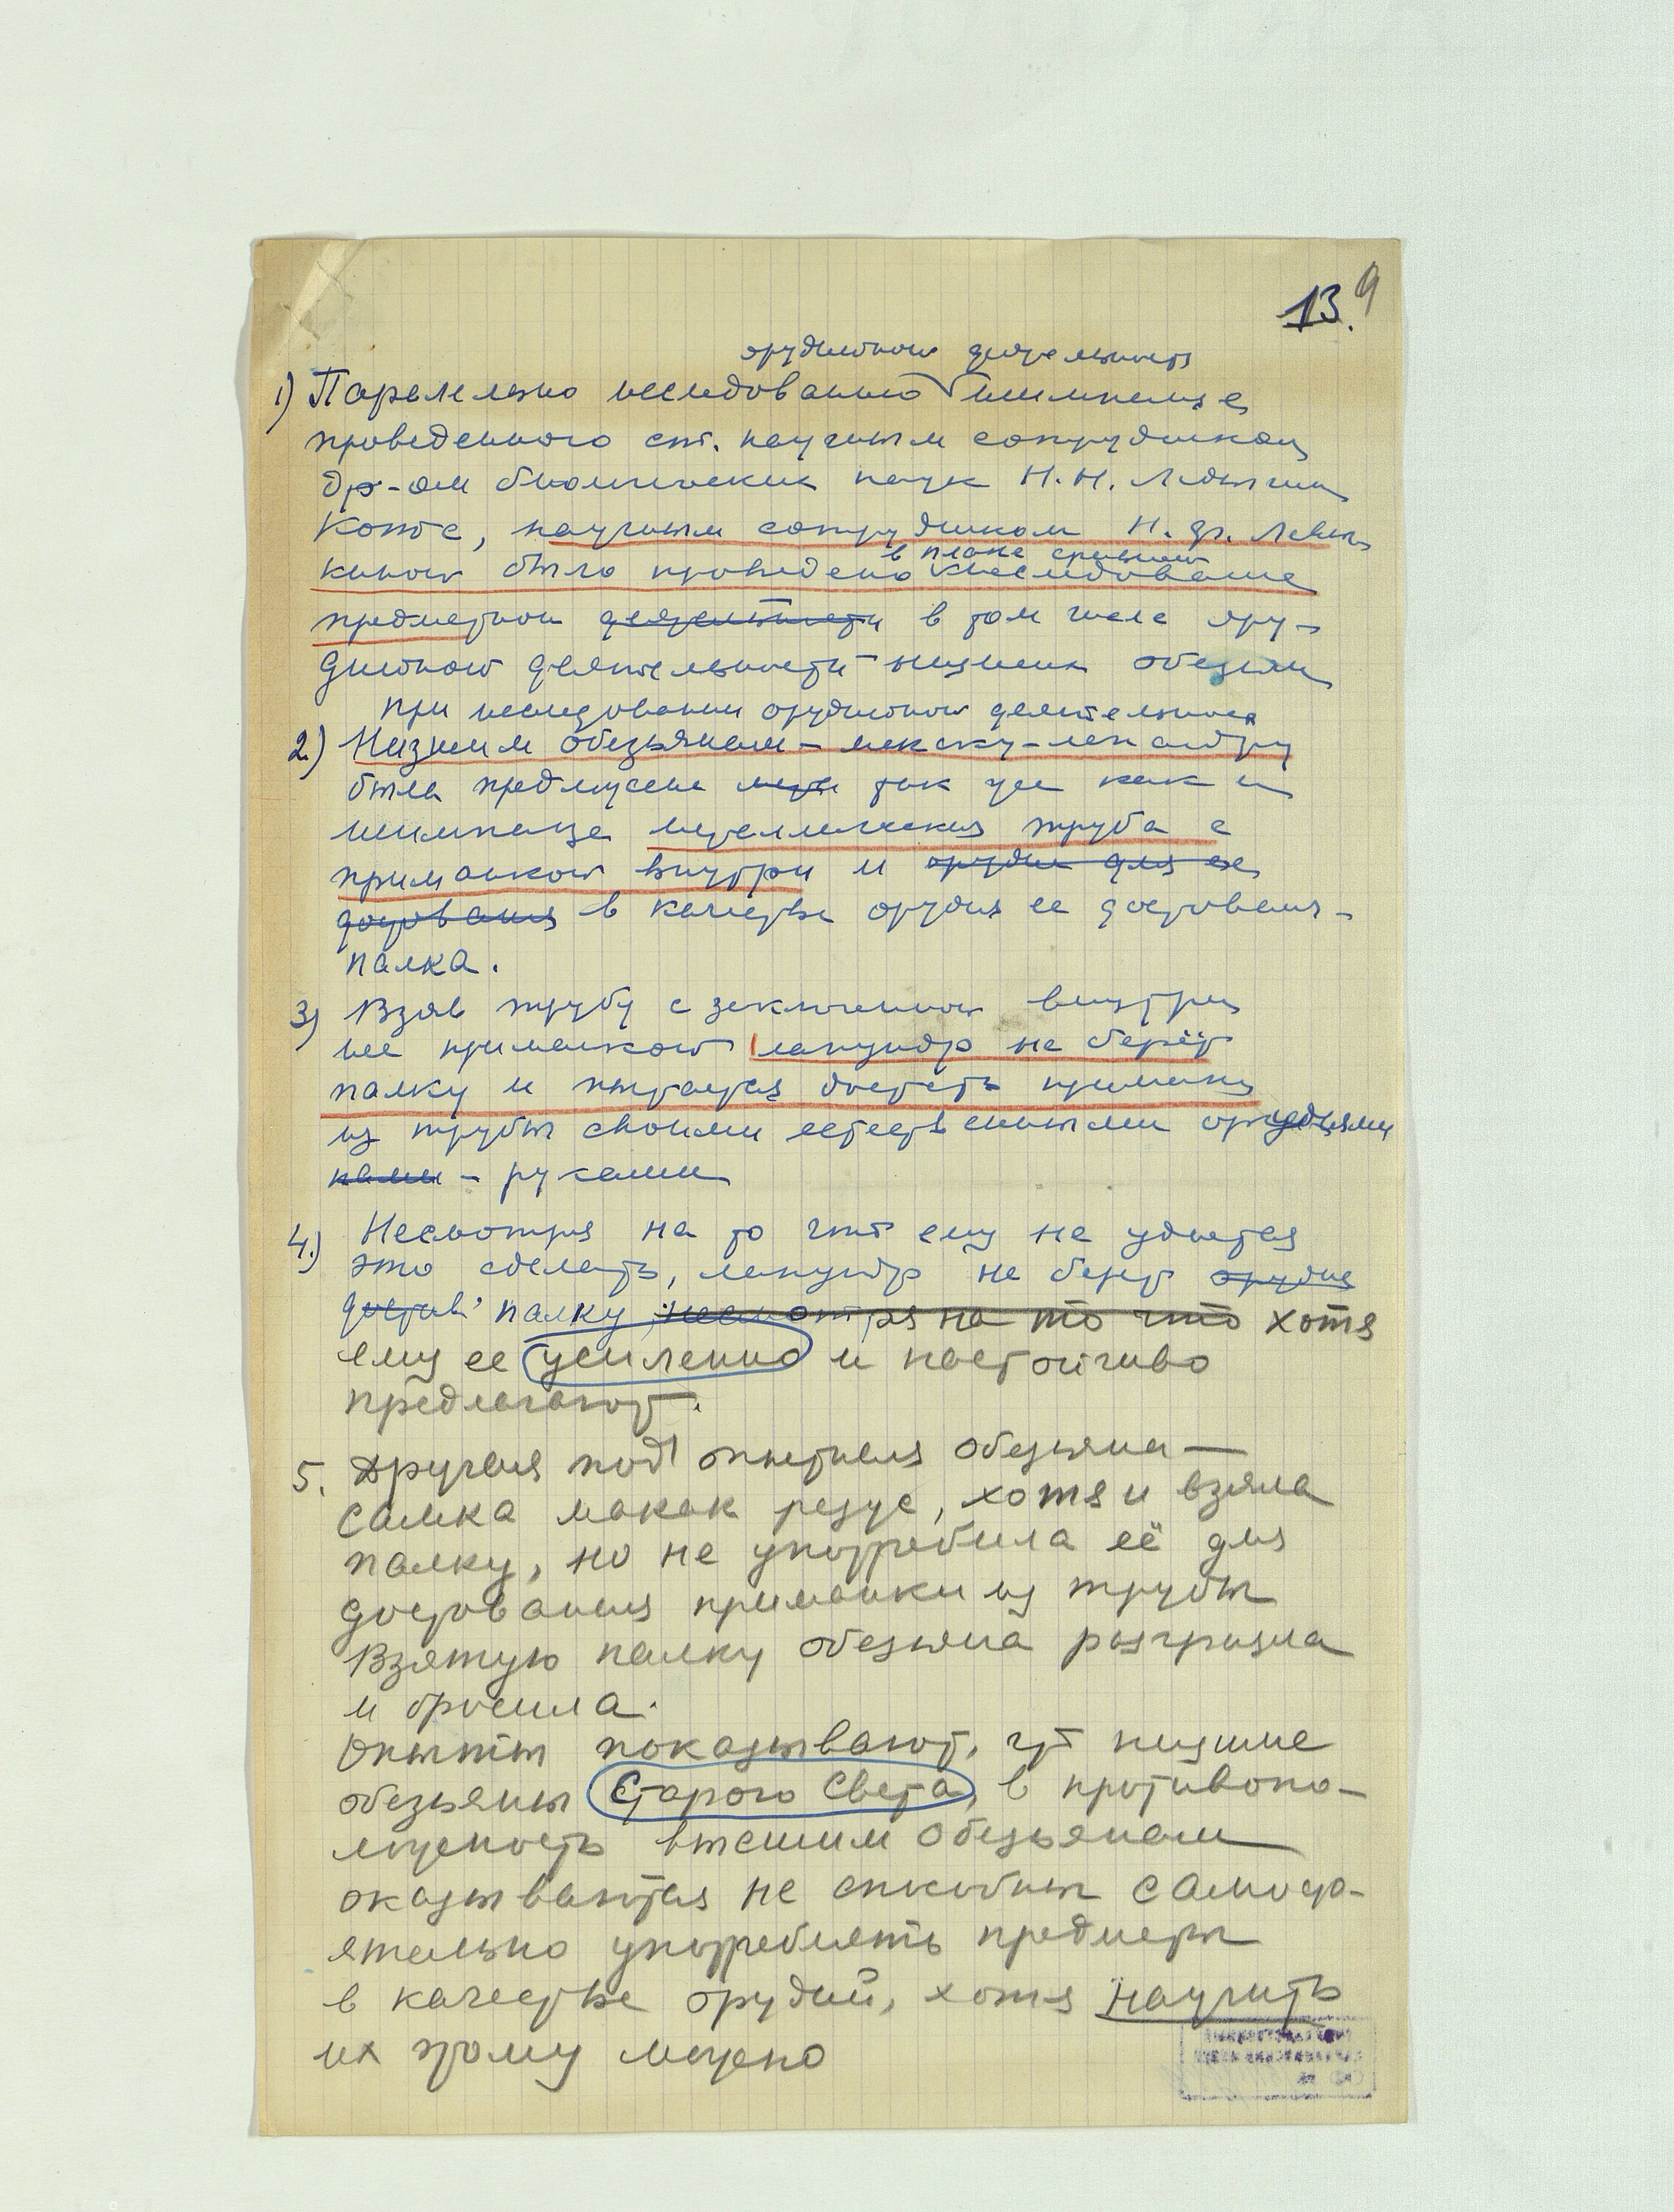 13. 9
орудийной деятельности
1) Паралелльно исследованию шимпанзе
проведенного ст. научным сотрудником
др-ом биологических наук Н.Н. Ладыгин
Котс, научным сотрудником Н. Ф. Левы-
в плане сравнения
киной было проведено исследование
предметной деятельности в том числе ору-
дийной деятельности низших обезьян
при исследовании орудийной деятельности
2.) Низшим обезьянам –
была предложена так же как и
шимпанзе металлическая труба с
приманкой внутри и орудие для ее
доставания в качестве орудия ее доставания –
палка.
3) Взяв трубу с заключенной внутри
нее приманкой мандр не берёт
палку и пытается достать приманку
из трубы своими естественными орудиями
ками – руками
4.) Несмотря на то что ему не удается
это сделать, не берет орудие
достав палку, несмотря на то что хотя
ему ее усиленно и настойчиво
предлагают.
5. Другая подопытная обезьяна –
самка макак резус, хотя и взяла
палку, но не употребила её для
доставания приманки из трубы
Взятую палку обезьяна разгрызла
и бросила.
Опыты показывают, что низшие
обезьяны Старого Света, в противопо-
ложность высшим обезьянам
оказываются не способны самосто-
ятельно употреблять предметы
в качестве орудий, хотя научить
их этому можно